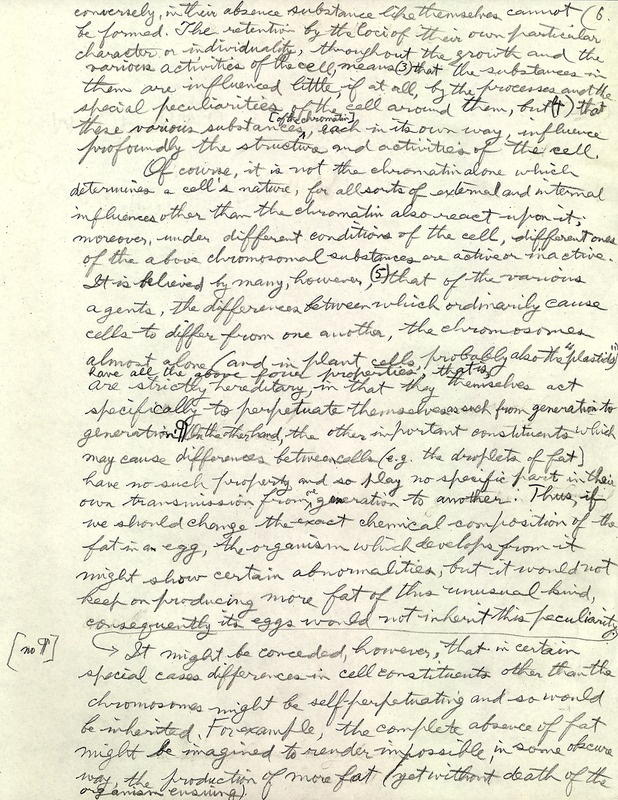 conversely, in their absence substance like themselves cannot (6.
be formed. The retention by the loci of their own particular
character or individuality, throughout the growth and the
various activities of the cell, means (3) that the substances in
them are influenced little, if at all, by the processes and the
special peculiarities of the cell around them, but (4) that
[of the chromatin]
these various substances, each in its own way, influence
profoundly the structure and activities of the cell.
Of course, it is not the chromatin alone which
determines a cell's nature, for all sorts of external and internal
influences other than the chromatin also react upon it;
moreover, under different conditions of the cell, different ones
of the above chromosomal substances are active or inactive.
It is believed by many, however, (5) that of the various
agents, the differences between which ordinarily cause
cells to differ from one another, the chromosomes
almost alone (and in plant cells probably also the "plastids")
have all the above four properties, that is,
are strictly hereditary, in that they themselves act
specifically to perpetuate themselves as such from generation to
generation. ¶ On the other hand, the other important constituents which
may cause differences between cells (e.g. the droplets of fat)
have no such property and so play no specific part in their
own transmission from one generation to another. Thus, if
we should change the exact chemical composition of the
fat in an egg, the organism which develops from it
might show certain abnormalities, but it would not
keep on producing more fat of this unusual kind,
consequently its eggs would not inherit this peculiarity.
[no ¶] It might be conceded, however, that in certain
special cases differences in cell constituents other than the
chromosomes might be self-perpetuating and so would
be inherited. For example, the complete absence of fat
might be imagined to render impossible, in some obscure
way, the production of more fat (yet without death of the
organism ensuing)